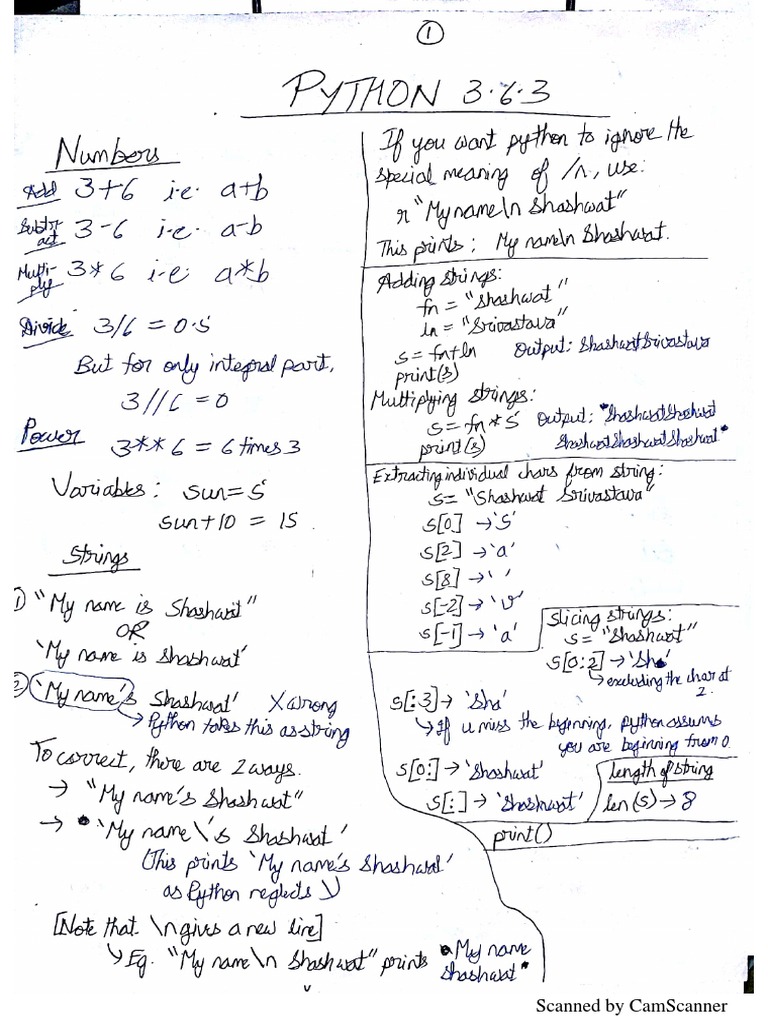 1
PYTHON 3.6.3
Numbers
Add 3+6 i.e. a+b
Subtract 3-6 i.e. a-b
Multiply 3*6 i.e. a*b
Divide 3/6 = 0.5
But for only integral part,
3//6 = 0
Power 3**6 = 6 times 3
Variables: sun=5
sun+10 = 15
Strings
1) "My name is Shashwat"
OR
'My name is Shashwat'
2) 'My name's Shashwat' X wrong
→ Python takes this as string
To correct, there are 2 ways.
→ "My name's Shashwat"
→ 'My name\'s Shashwat'
(This prints 'My name's Shashwat'
as Python neglects \)
[Note that \n gives a new line]
→ Eg. "My name\n Shashwat" prints "My name
Shashwat"
If you want python to ignore the
special meaning of /n, use:
r "My name\n Shashwat"
This prints: My name\n Shashwat.
Adding strings:
fn = "Shashwat"
ln = "Srivastava"
s = fn+ln Output: ShashwatSrivastava
print(s)
Multiplying strings:
s = fn * 5 Output: "ShashwatShashwat
print(s) ShashwatShashwatShashwat"
Extracting individual chars from string:
s= "Shashwat Srivastava"
s[0] → 'S'
s[2] → 'a'
s[8] → ' '
s[-2] → 'v'
s[-1] → 'a'
Slicing strings:
s= "Shashwat"
s[0:2] → 'Sh'
→ excluding the char at
2.
s[:3] → 'Sha'
→ If u miss the beginning, python assumes
you are beginning from 0.
s[0:] → 'Shashwat'
s[:] → 'Shashwat'
length of string
len(s) → 8
print()
Scanned by CamScanner